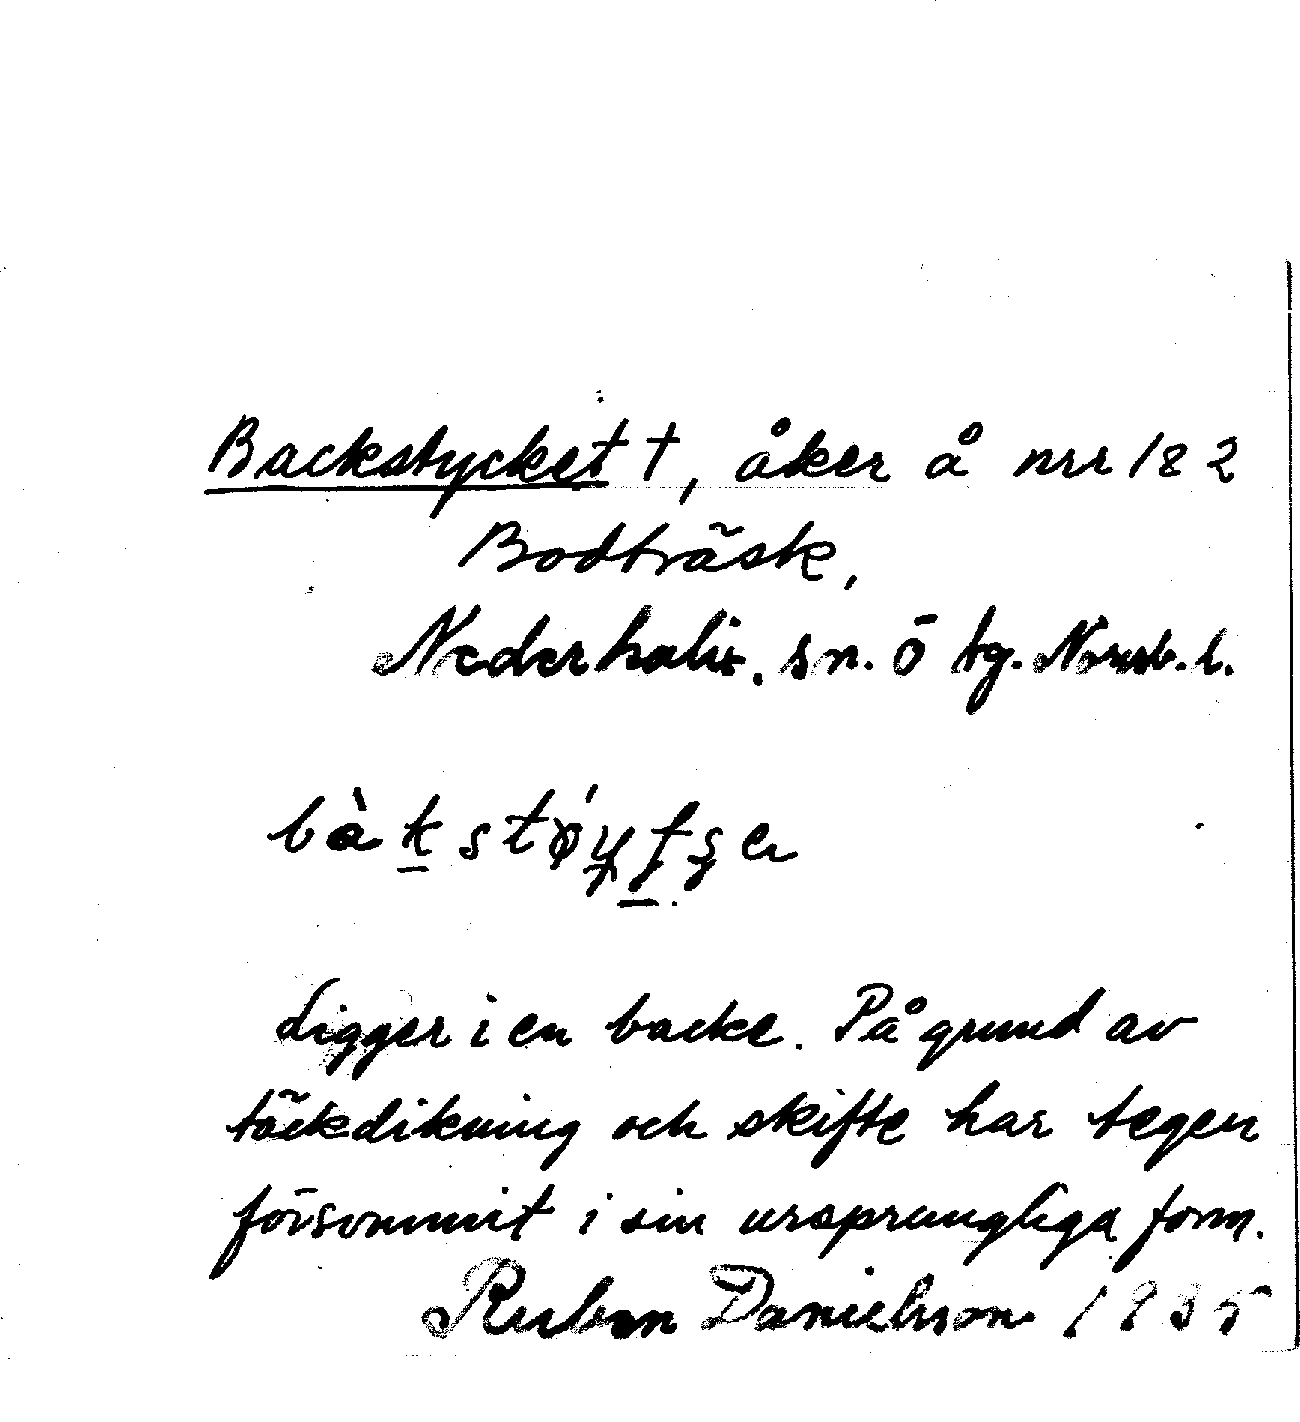 Backstycket †, åker å nr 1 & 2
Bodträsk,
Nederkalix. sn. Ö bg. Norrb. l.
Ligger i en backe. På grund av
täckdikning och skifte har tegen
försvunnit i sin ursprungliga form.
Ruben Danielsson 1935